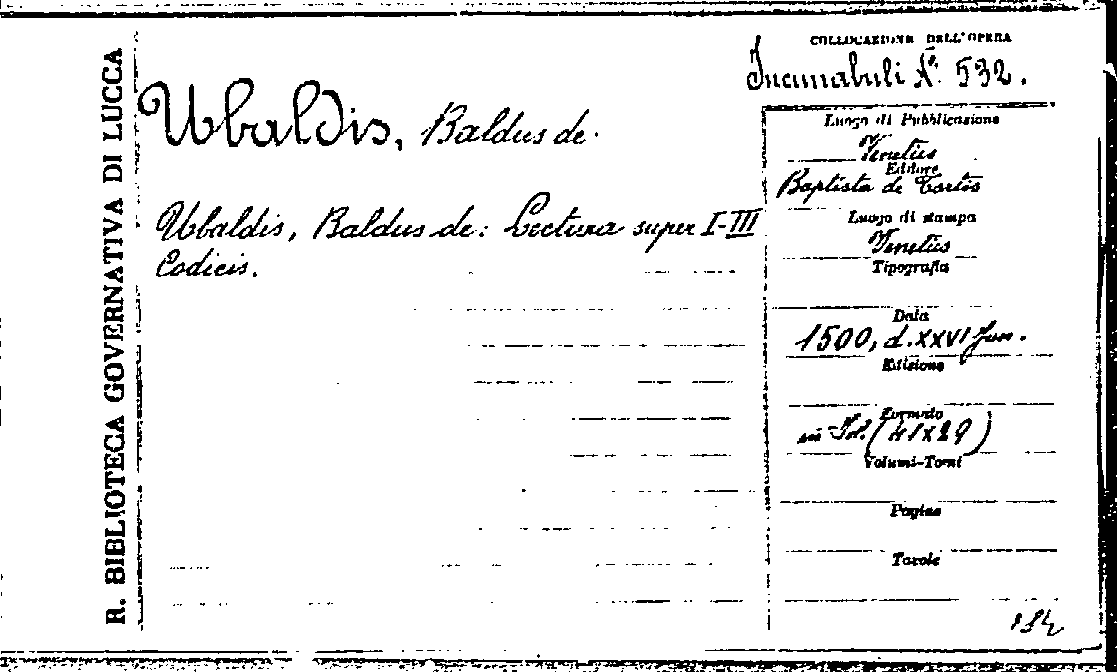 R. BIBLIOTECA GOVERNATIVA DI LUCCA
Ubaldis, Baldus de.
Ubaldis, Baldus de: Lectura super I-III
Codicis.
COLLOCAZIONE DELL'OPERA
Incunabuli N.º 532.
Luogo di Pubblicazione
Venetiis
Editore
Baptista de Tortis
Luogo di stampa
Venetiis
Tipografia
Data
1500, d. XXVI Jun.
Edizione
Formato
in Fol. (41x29)
Volumi-Tomi
Pagine
Tavole